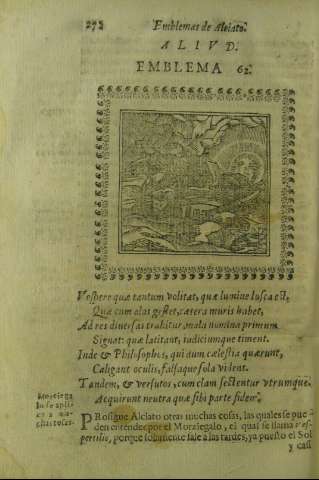 272 Emblemas de Alciato.
ALIVD.
EMBLEMA 62.
Vespere quæ tantum volitat, quæ lumine lusca est,
Quæ cum alas gestet, cætera muris habet,
Ad res diuersas trahitur, mala nomina primum
Signat: quæ latitant, iudiciumque timent.
Inde & Philosophos, qui dum cælestia quærunt,
Caligant oculis, falsaque sola vident.
Tandem, & versutos, cum clam sectentur vtrumque
Acquirunt neutra quæ sibi parte fidem.
Morciega
se apli
ca a mu-
chas cosas.
PRosigue Alciato otras muchas cosas, las quales se pue
den entender por el Morziegalo, el qual se llama ves-
pertilio, porque solamente sale a las tardes, ya puesto el Sol
y casi